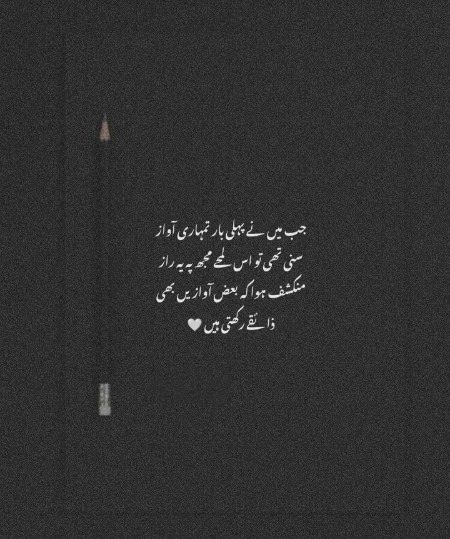 جب میں نے پہلی بار تمہاری آواز
سنی تھی تو اس لمحے مجھ پہ یہ راز
منکشف ہوا کہ بعض آوازیں بھی
ذائقے رکھتی ہیں 🤍